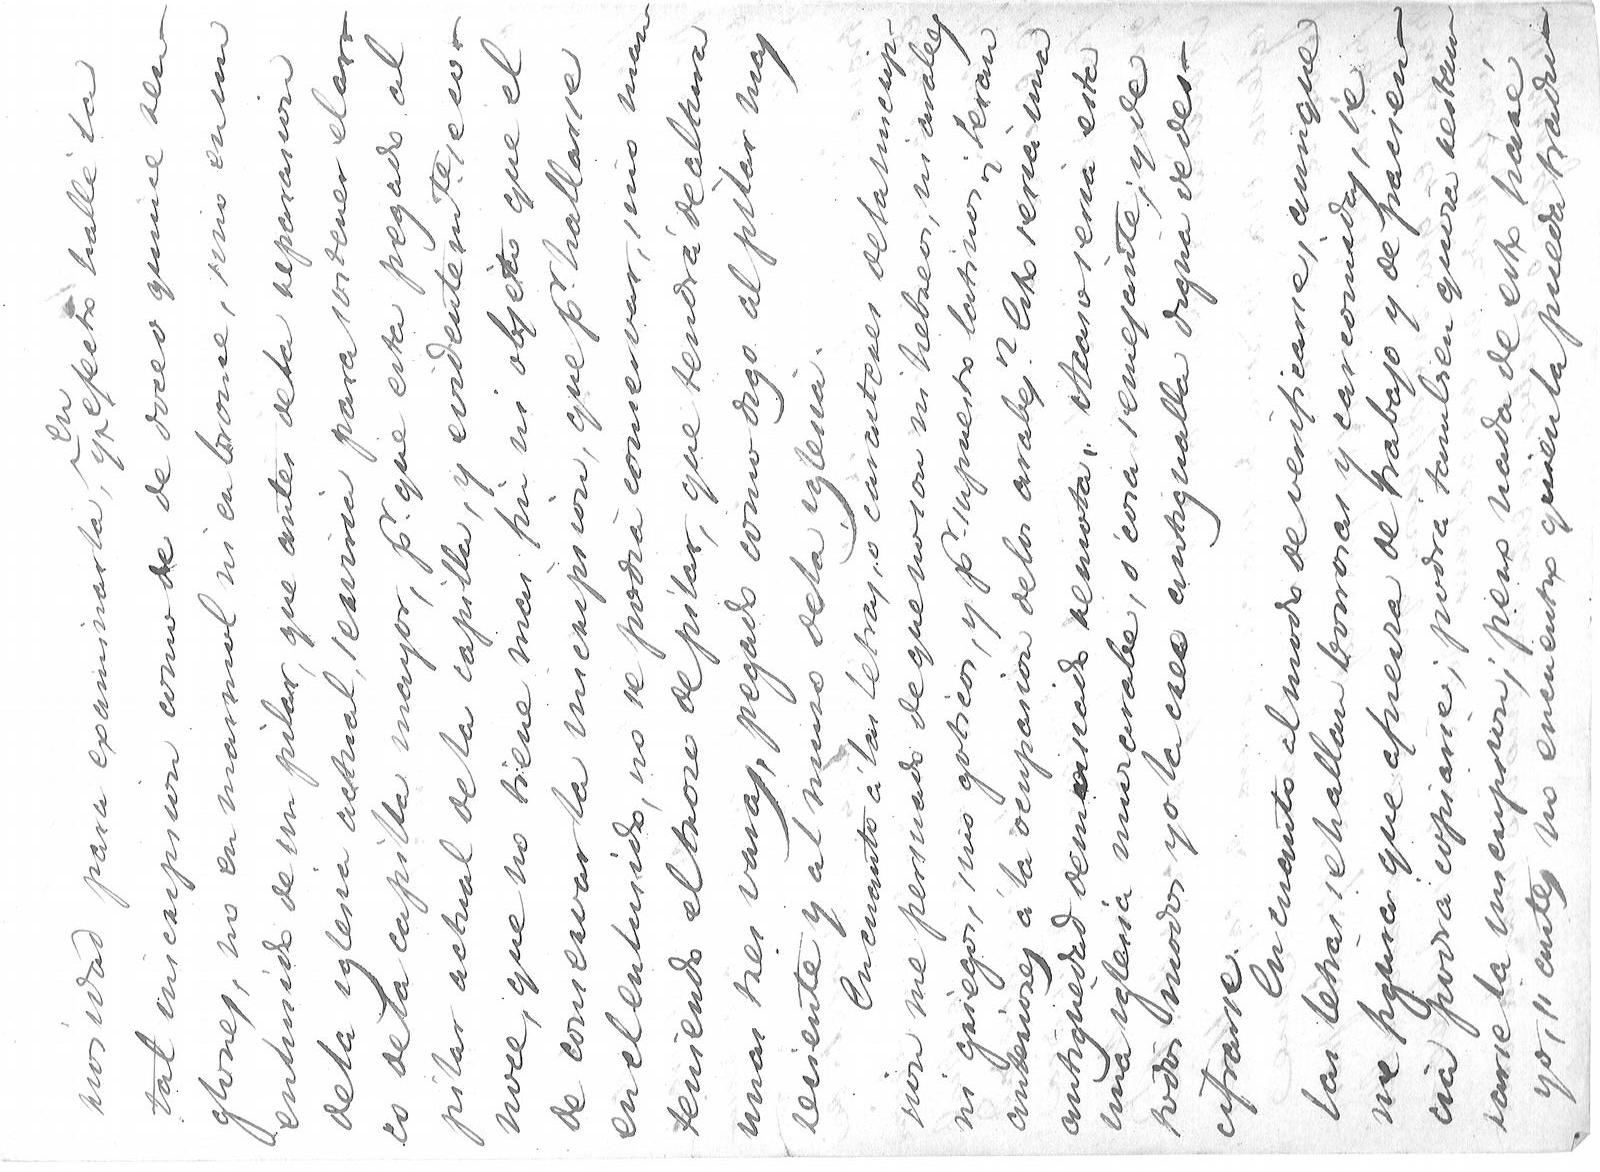 niosidad para examinarla, y en efecto hallé la
tal inscripcion como de doze o quince ren-
glones, no en marmol ni en bronce, sino en un
enlucido de un pilar, que antes de la reparacion
de la yglesia actual, serviria para sostener el ar-
co de la capilla mayor, pr. que esta pegado al
pilar actual de la capilla, y evidentemte, se co-
noce, que no tiene mas fin ni objeto que el
de conservar la inscripcion, que pr. hallarse
en el enlucido, no se podia conservar, sino man
teniendo el trozo de pilar, que tendrá de altura
unas tres varas, pegado como digo al pilar mas
reciente y al muro de la yglesia.
En cuanto a las letras, o caracteres de la inscrip-
cion me persuado de que no son ni hebreos, ni arabes
ni griegos, sino goticos, y pr. supuesto latinos; ¿seran
anteriores a la ocupacion de los arabes? Esto seria una
antigüedad demasiado remota; acaso seria esta
una yglesia muzarabe, o cosa semejante; y de
todos modos yo la creo antigualla digna de des-
cifrarse.
En cuanto al modo de verificarse, aunque
las letras se hallan borrosas y carcomidas, se
me figura que a fuerza de trabajo y de pacien-
cia podra copiarse; podra tambien quiza restau
rarse la inscripcion; pero nada de esto haré
yo, si antes no encuentro quien la pueda tradu-